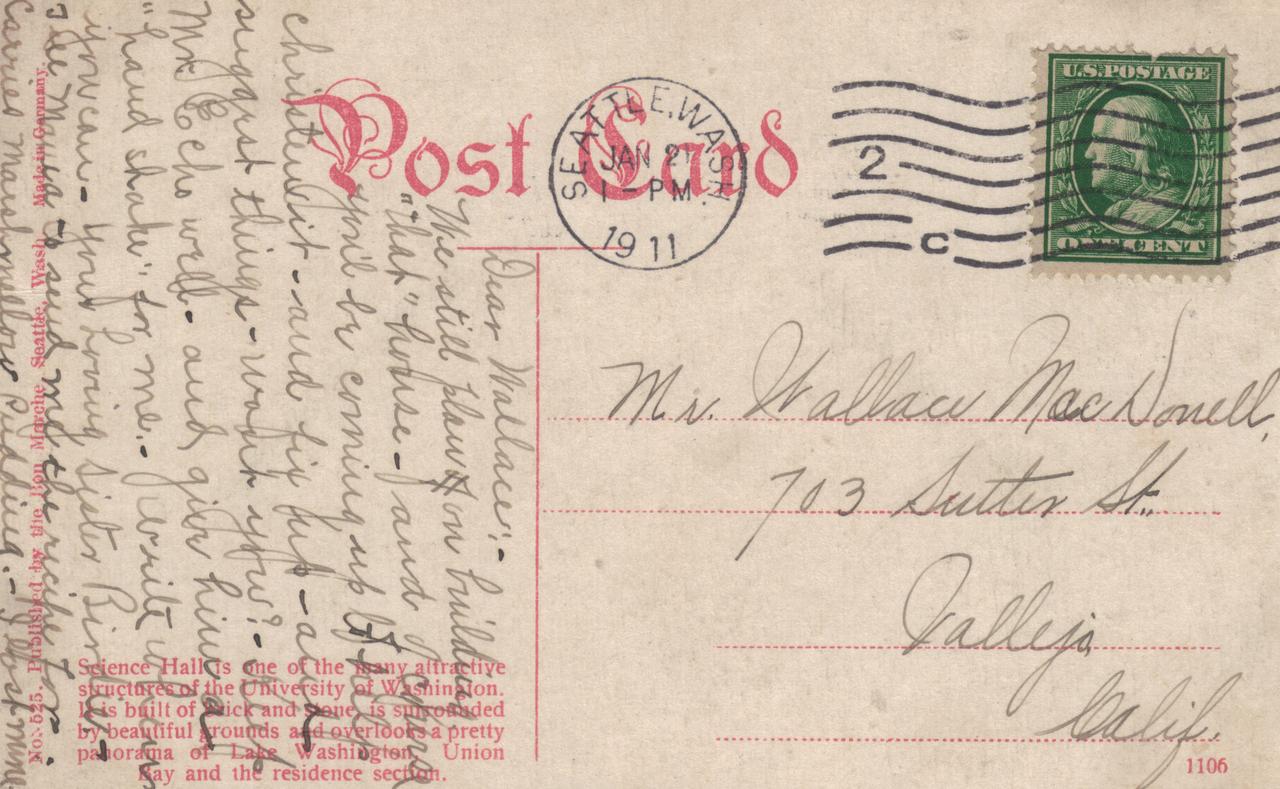 Post Card
SEATTLE, WASH.
JAN 27
1 - PM
1911
2
C
U.S. POSTAGE
ONE CENT
Mr. Wallace MacDonell,
703 Sutter St.
Vallejo
Calif.
1106
Dear Wallace:-
We still plan on building
"that" house - and I
you'll be coming up to
christen it - and fix up - and
suggest things - won't you? -
Mr E is well - and give him a
"hand shake" for me. - Write
you can - Your Loving Sister
Tell Mama to send me the recipe for
Carries marshmallow Pudding. -
No. 525. Published by the Bon Marche, Seattle, Wash. Made in Germany.
Science Hall is one of the many attractive
structures of the University of Washington.
It is built of brick and stone, is surrounded
by beautiful grounds and overlooks a pretty
panorama of Lake Washington, Union
Bay and the residence section.